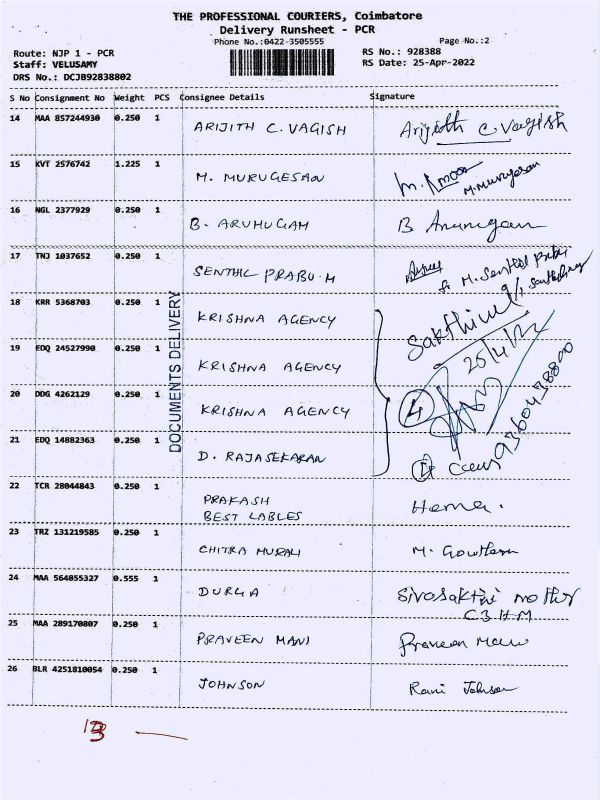 THE PROFESSIONAL COURIERS, Coimbatore
Delivery Runsheet - PCR
Phone No.:0422-3505555
Page No.:2
Route: NJP 1 - PCR
RS No.: 928388
Staff: VELUSAMY
RS Date: 25-Apr-2022
DRS No.: DCJB92838802
S No Consignment No Weight PCS Consignee Details Signature
14 MAA 857244930 0.250 1 ARIJITH C. VAGISH Arijith C Vagish
15 KVT 2576742 1.225 1 M. MURUGESAN M. Murugesan
16 NGL 2377929 0.250 1 B. ARUMUGAM B Arumugam
17 TNJ 1037652 0.250 1 SENTHIL PRABU.M
18 KRR 5368703 0.250 1 KRISHNA AGENCY
19 EDQ 24527990 0.250 1 KRISHNA AGENCY
20 DDG 4262129 0.250 1 KRISHNA AGENCY
21 EDQ 14882363 0.250 1 D. RAJASEKARAN
DOCUMENTS DELIVERY
25/4/22
4
9360438800
22 TCR 28044843 0.250 1 PRAKASH
BEST LABLES
Hema.
23 TRZ 131219585 0.250 1 CHITRA MURALI M. Gowtham
24 MAA 564855327 0.555 1 DURGA Sivasakthi mother
25 MAA 289170807 0.250 1 PRAVEEN MANI Praveen Mani
26 BLR 4251810054 0.250 1 JOHNSON Rani Johnson